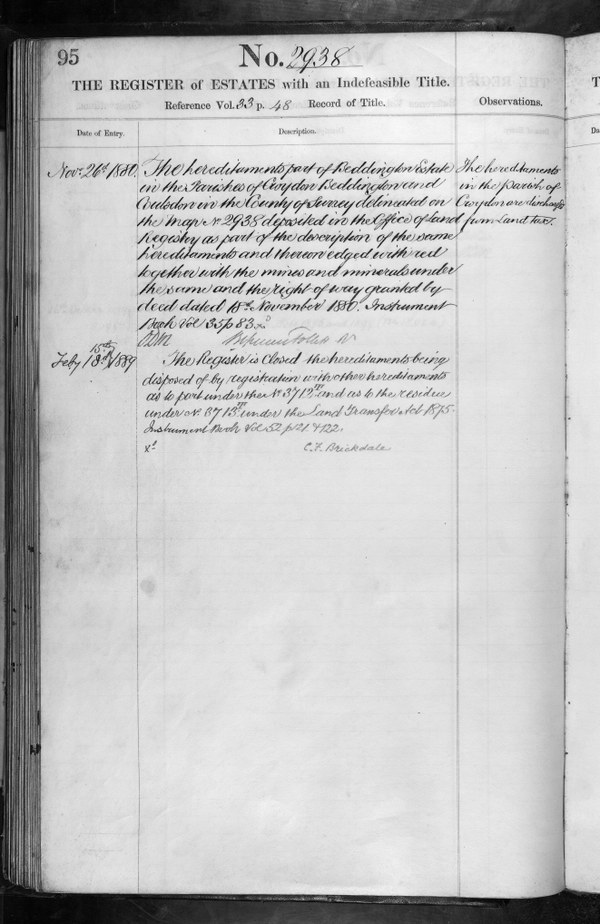 95
No. 2938
THE REGISTER of ESTATES with an Indefeasible Title.
Reference Vol. 33 p. 48 Record of Title.
Observations.
Date of Entry.
Description.
Novr. 26th 1880.
The hereditaments part of Beddington Estate
in the Parishes of Croydon Beddington and
Coulsdon in the County of Surrey delineated on
the map No 2938 deposited in the Office of Land
Registry as part of the description of the same
hereditaments and thereon edged with red
together with the mines and minerals under
the same and the right of way granted by
deed dated 18th November 1880. Instrument
Book Vol 35 p 83
The hereditaments
in the parish of
Croydon are discharged
from Land tax.
Follett
15th
Feby 18th 1889
The Register is Closed the hereditaments being
disposed of by registration with other hereditaments
as to part under the No 3712 and as to the residue
under No 3713 under the Land Transfer Act 1875.
Instrument Book Vol 52 p 121 & 122.
C. F. Brickdale